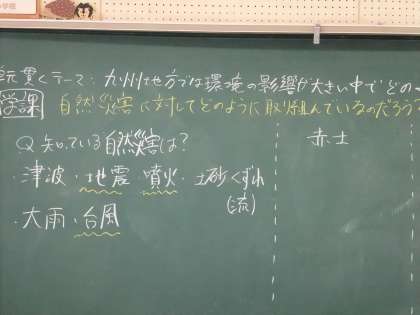 元貫くテーマ：九州地方では環境の影響が大きい中でどの
学課 自然災害に対してどのように取り組んでいるのだろう？
Q 知っている自然災害は？
・津波・地震・噴火・土砂くずれ
(流)
・大雨・台風
赤土